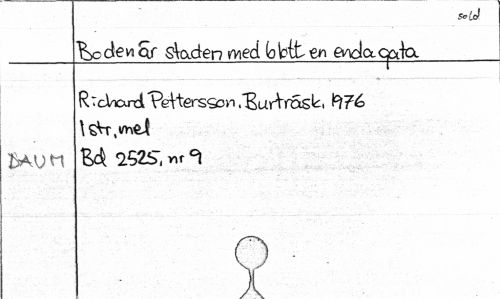 sold
Boden är staden med blott en enda gata
Richard Pettersson, Burträsk, 1976
1 str, mel
DAUM Bd 2525, nr 9